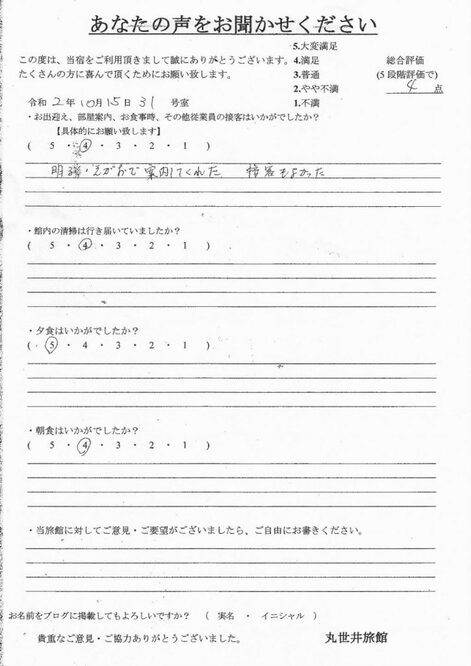 あなたの声をお聞かせください
5.大変満足
この度は、当宿をご利用頂きまして誠にありがとうございます。 4.満足 総合評価
たくさんの方に喜んで頂くためにお願い致します。 3.普通 (5段階評価で)
2.やや不満 4 点
令和 2年 10月 15日 31 号室 1.不満
・お出迎え、部屋案内、お食事時、その他従業員の接客はいかがでしたか?
【具体的にお願い致します】
( 5 ・ 4 ・ 3 ・ 2 ・ 1 )
明るい えがおで 案内してくれた 接客もよかった
・館内の清掃は行き届いていましたか?
( 5 ・ 4 ・ 3 ・ 2 ・ 1 )
・夕食はいかがでしたか?
( 5 ・ 4 ・ 3 ・ 2 ・ 1 )
・朝食はいかがでしたか?
( 5 ・ 4 ・ 3 ・ 2 ・ 1 )
・当旅館に対してご意見・ご要望がございましたら、ご自由にお書きください。
お名前をブログに掲載してもよろしいですか? ( 実名 ・ イニシャル )
貴重なご意見・ご協力ありがとうございました。 丸世井旅館